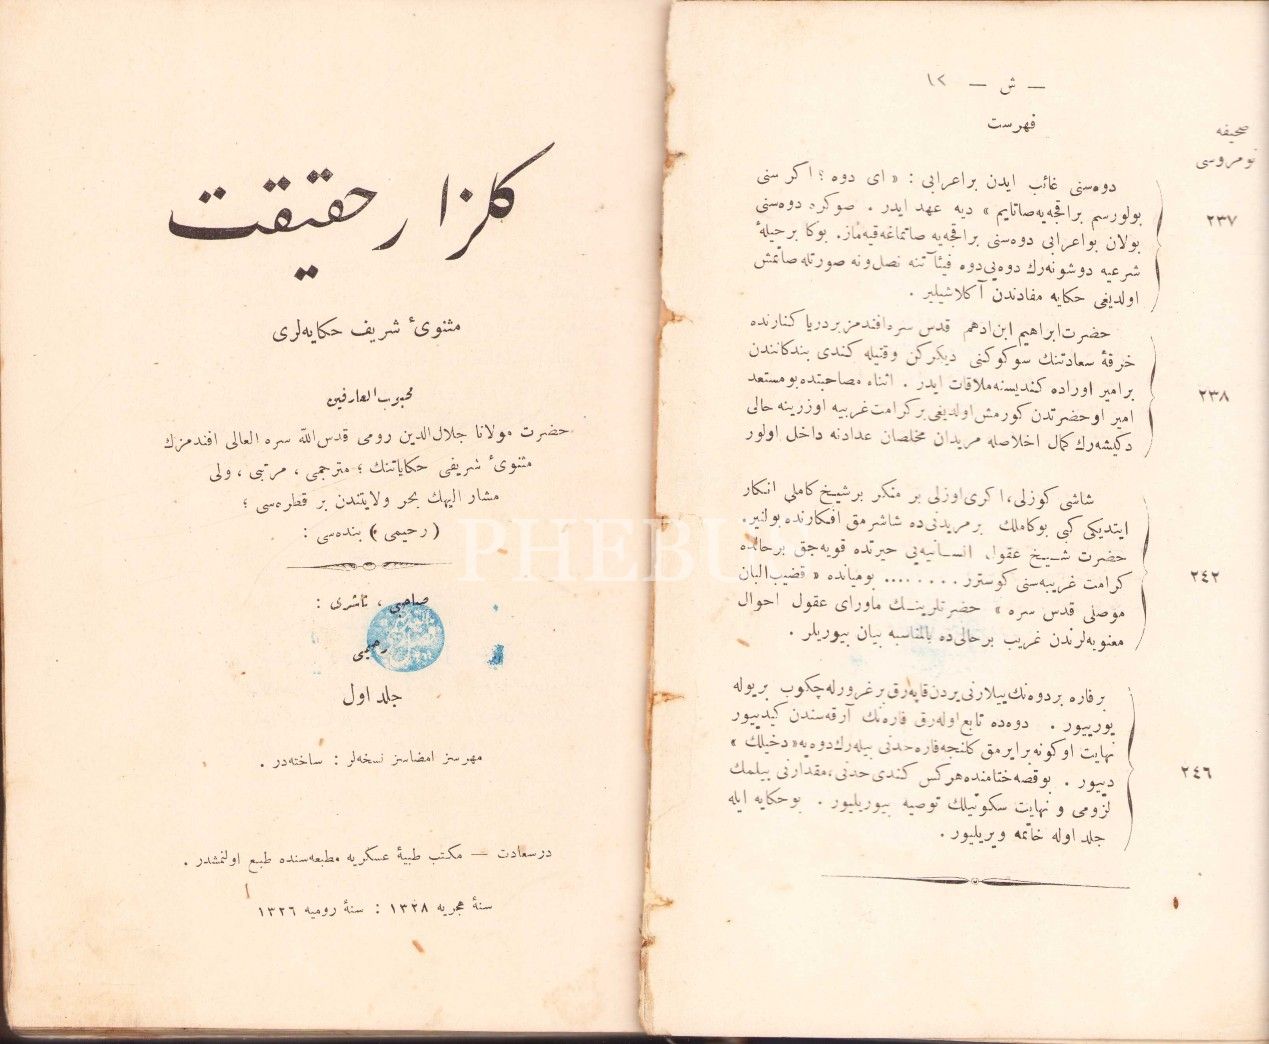 — ش — ١٢
فهرست
صحیفه
نومروسی
دوه‌سنی غائب ایدن براعرابی : « ای دوه ؟ اکر سنی
بولورسم براقجه‌یه صاتایم » دیه عهد ایدر . صوکره دوه‌سنی
بولان بواعرابی دوه‌سنی براقجه‌یه صاتماغه قیه‌ماز. بوکا بر حیلهٔ
شرعیه دوشونه‌رك دوه‌یی دوه فیئآتنه نصل ونه صورتله صاتمش
اولدیغی حکایه مفادندن آکلاشیلیر .
٢٣٧
حضرت ابراهیم ابن ادهم قدس سره افندمز بردریا کنارنده
خرقهٔ سعادتنك سوکوکنی دیکرکن وقتیله کندی بندکانندن
برامیر اوراده کندیسنه ملاقات ایدر . اثناء مصاحبتده بومستعد
امیر اوحضرتدن کورمش اولدیغی برکرامت غریبه اوزرینه حالی
دکیشه‌رك کمال اخلاصله مریدان مخلصان عدادنه داخل اولور
٢٣٨
شاشی کوزلی، اکری اوزلی بر منکر برشیخ کاملی انکار
ایتدیکی کبی بوکاملك برمریدنی‌ده شاشرمق افکارنده بولنیر.
حضرت شیخ عقول انسانیه‌یی حیرتده قویه‌جق برحالده
کرامت غریبه‌سنی کوسترر ........ بومیانده « قضیب البان
موصلی قدس سره » حضرتلرینك ماورای عقول احوال
معنویه‌لرندن غریب برحالی‌ده بالمناسبه بیان بیوریلر .
٢٤٢
برفاره بردوه‌نك ییلارنی یردن قاپه‌رق برغرورله چکوب بریوله
یورییور . دوه‌ده تابع اوله‌رق فاره‌نك آرقه‌سندن کیدییور
نهایت اوکونه برایرمق کلنجه فاره حدنی بیله‌رك دوه‌یه « دخیلك »
دییور . بوقصه ختامنده هرکس کندی حدنی، مقدارنی بیلمك
لزومی و نهایت سکوتیلك توصیه بیوریلیور . بوحکایه ایله
جلد اوله خاتمه ویریلیور .
٢٤٦
کلزار حقیقت
مثنویٔ شریف حکایه‌لری
محبوب العارفین
حضرت مولانا جلال‌الدین رومی قدس‌الله سره العالی افندمزك
مثنویٔ شریفی حکایاتنك ؛ مترجمی ، مرتبی ، ولی
مشار الیهك بحر ولایتندن بر قطره‌سی ؛
( رحیمی ) بنده‌سی :
صاحبی ، ناشری :
رحیمی
جلد اول
مهرسز امضاسز نسخه‌لر : ساخته‌در .
درسعادت — مکتب طبیهٔ عسکریه مطبعه‌سنده طبع اولنمشدر .
سنهٔ هجریه ١٣٢٨ : سنهٔ رومیه ١٣٢٦
PHEBUS